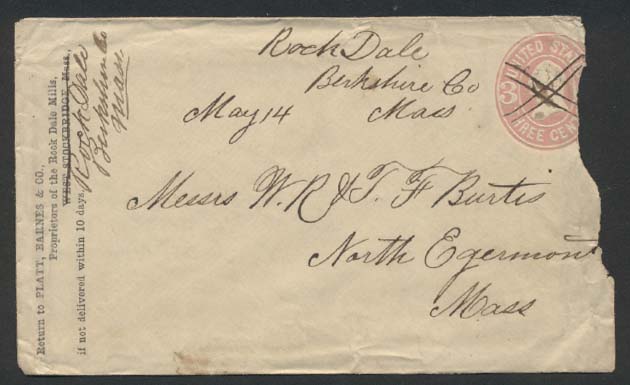 Return to PLATT, BARNES & CO.,
Proprietors of the Rock Dale Mills,
WEST STOCKBRIDGE, Mass.,
if not delivered within 10 days.
Rock Dale
Berkshire Co
Mass
Rock Dale
Berkshire Co
May 14 Mass
UNITED STA
3
THREE CENT
Messrs W. R & T. F Burtis
North Egermont
Mass